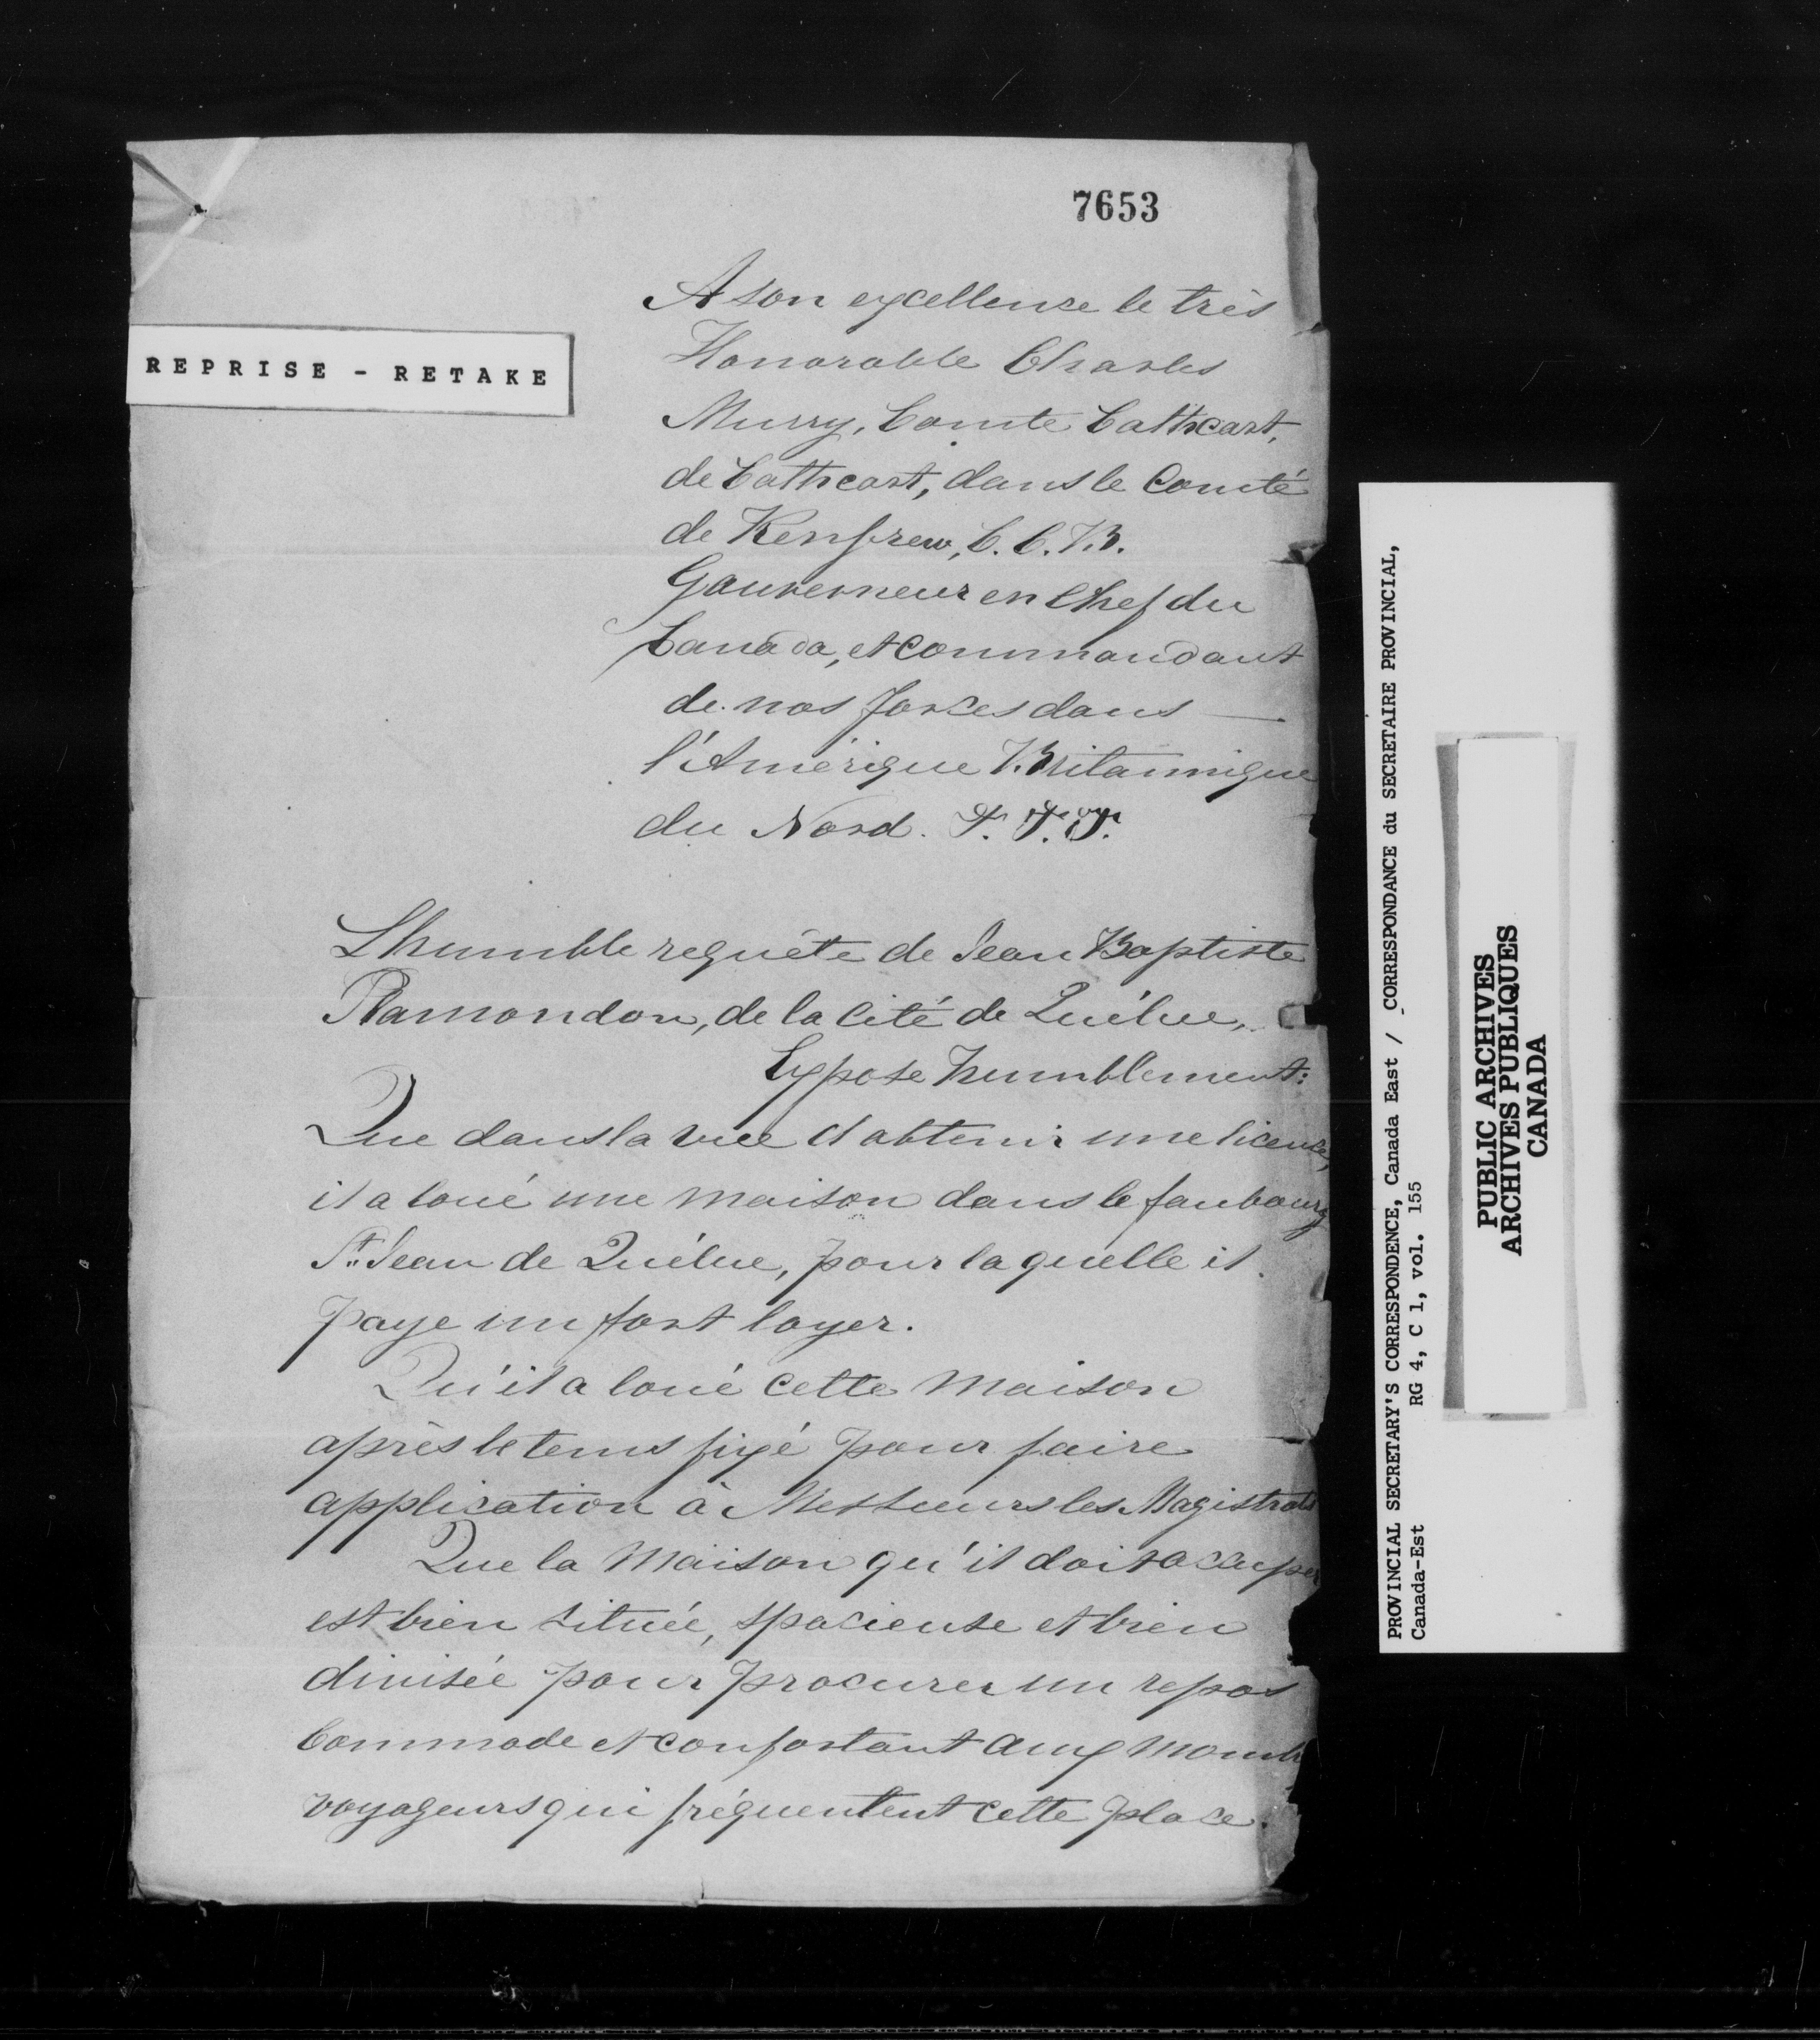 7653
REPRISE - RETAKE
A son excellence le très
Honorable Charles
Murry, Comte Cathcart,
de Cathcart, dans le Comté
de Renfrew, C. C. B.
Gouverneur en Chef du
Canada, et commandant
de nos forces dans
l'Amérique Britannique
du Nord.
L'humble requête de Jean Baptiste
Plamondon, de la Cité de Québec,
Expose humblement:
Que dans la vue d'obtenir une licence,
il a loué une maison dans le faubourg
St. Jean de Québec, pour laquelle il
paye un fort loyer.
Qu'il a loué cette maison
après le tems fixé pour faire
application à Messieurs les Magistrats
Que la Maison qu'il doit occuper
est bien située, spacieuse et bien
divisée pour procurer un repos
Commode et confortant aux
voyageurs qui fréquentent cette place.
PROVINCIAL SECRETARY'S CORRESPONDENCE, Canada East / CORRESPONDANCE du SECRETAIRE PROVINCIAL,
Canada-Est RG 4, C 1, vol. 155
PUBLIC ARCHIVES
ARCHIVES PUBLIQUES
CANADA